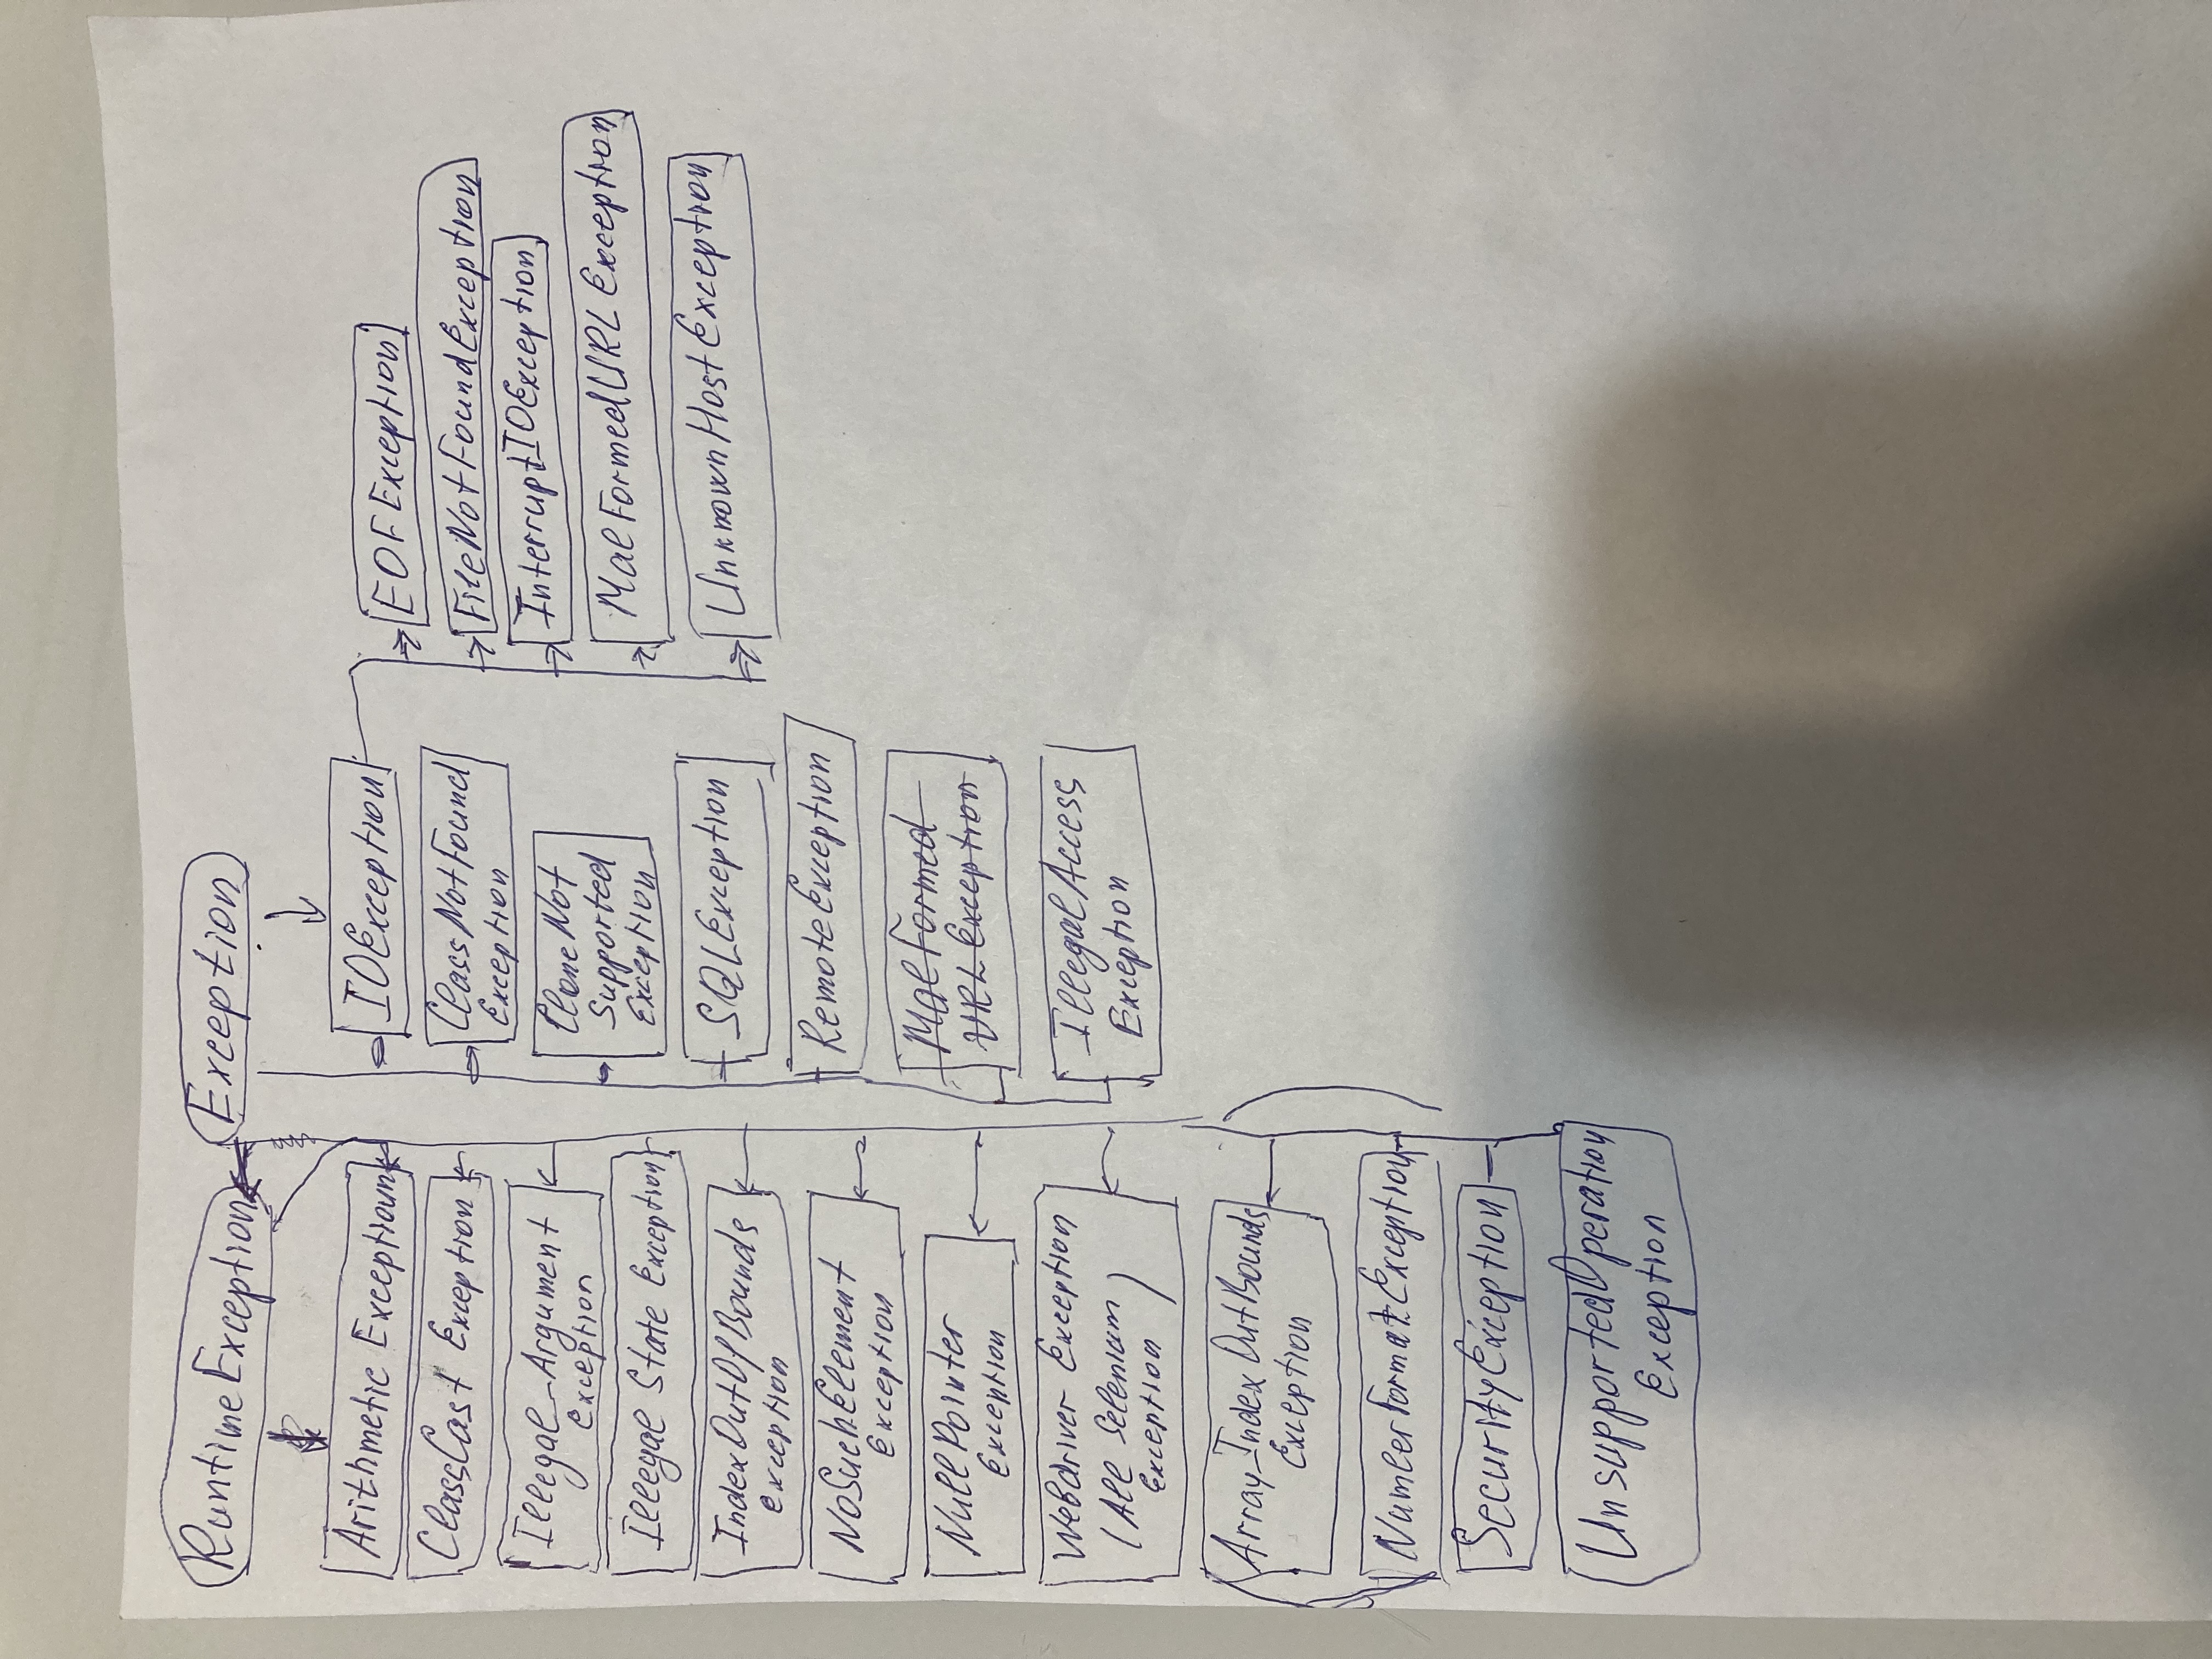 RuntimeException
Arithmetic Exceptioun
ClassCast Exception
Illegal-Argument
Exception
Illegal State Exception
IndexOutOfBounds
Exception
NoSuchElement
Exception
NullPointer
Exception
Webdriver Exception
(All Selenium
Exception)
ArrayIndexOutBounds
Exception
NumberFormatException
SecurityException
UnsupportedOperation
Exception
Exception
IOException
ClassNotFound
Exception
CloneNot
Supported
Exception
SQLException
RemoteException
MalFormed
URL Exception
IllegalAccess
Exception
EOFException
FileNotFoundException
InterruptIOException
MalFormedURLException
UnknownHostException